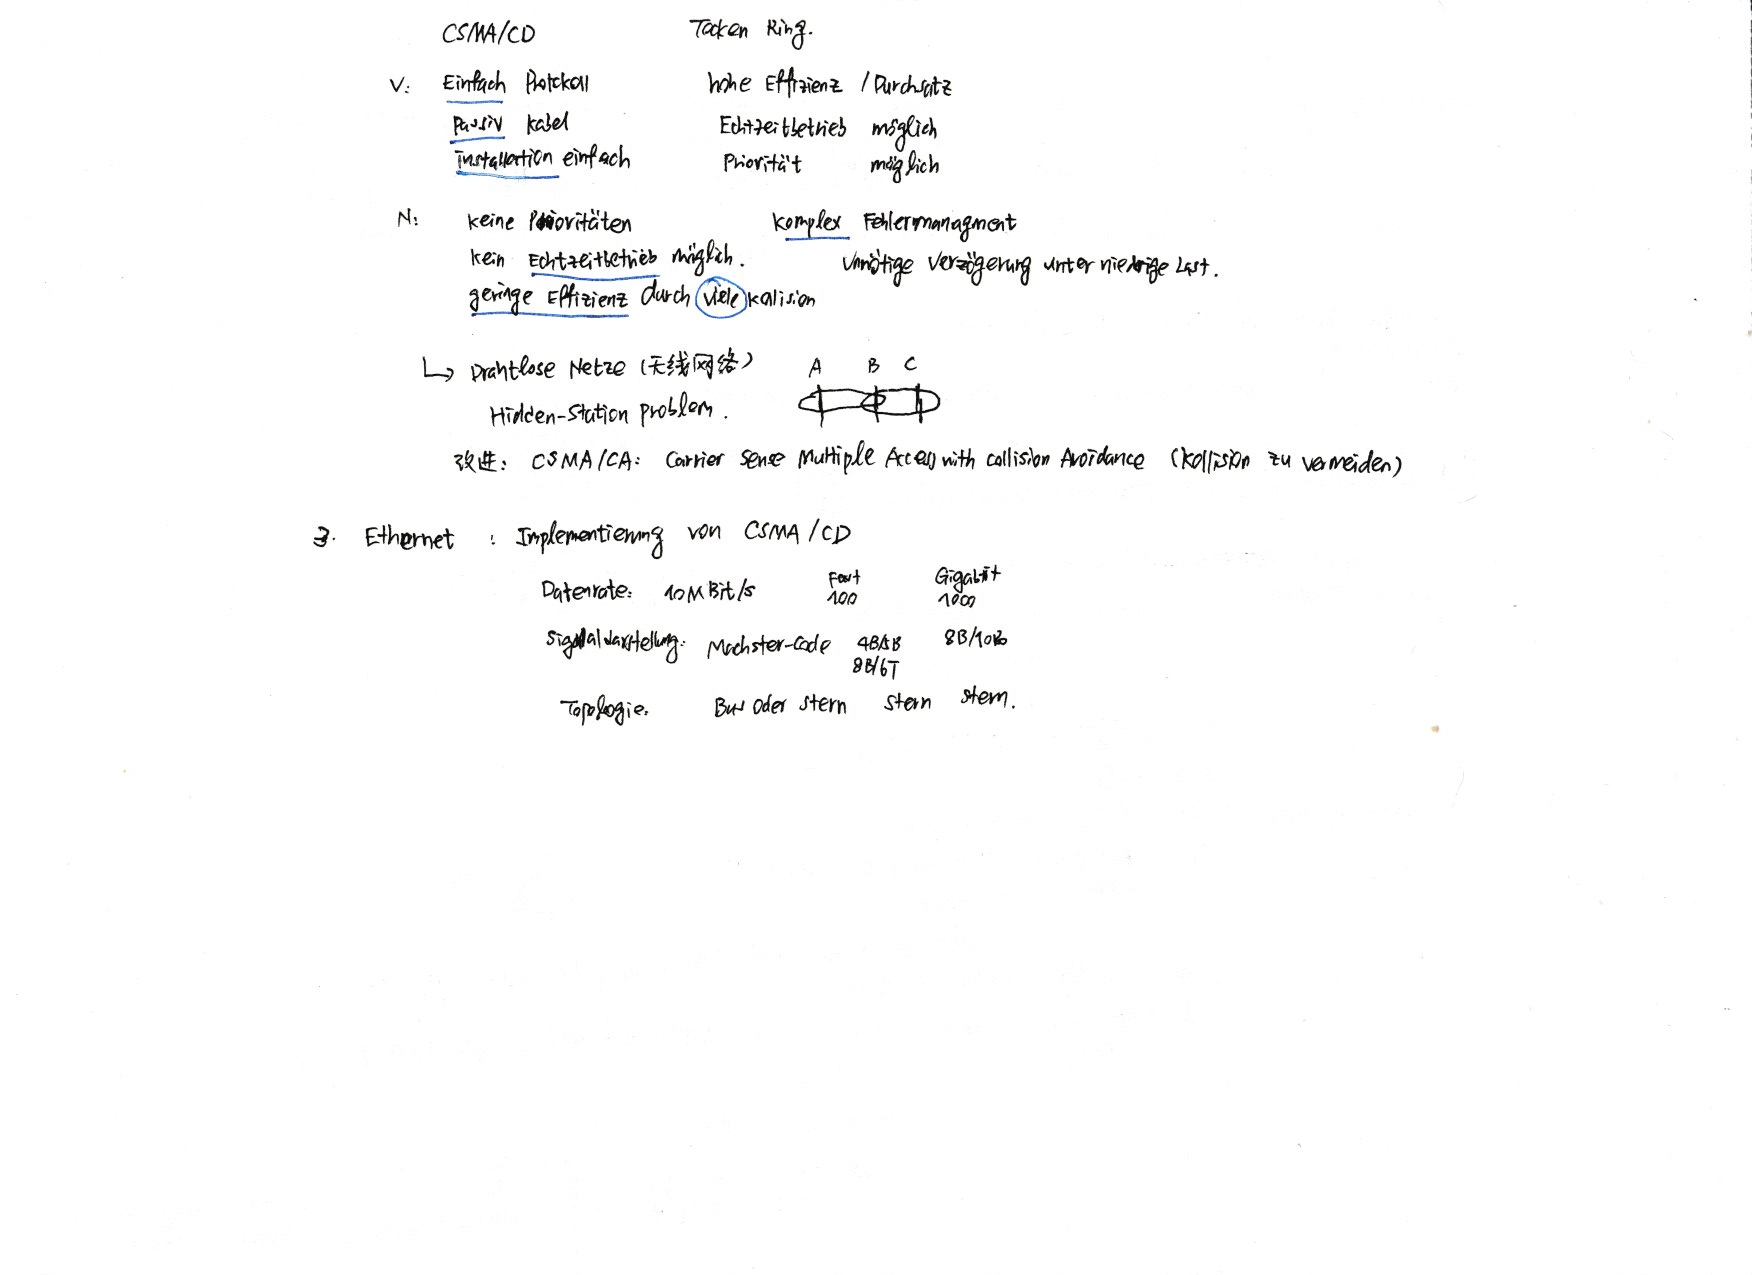 CSMA/CD Tocken Ring.
V: Einfach Protokoll hohe Effizienz / Durchsatz
Passiv Kabel Echtzeitbetrieb möglich
Installartion einfach Priorität möglich
N: keine Prioritäten komplex Fehlermanagment
kein Echtzeitbetrieb möglich. Unnötige Verzögerung unter niedrige Last.
geringe Effizienz durch viele kolision
↳ Drahtlose Netze (无线网络) A B C
Hidden-Station problem.
改进: CSMA/CA: Carrier Sense Multiple Access with collision Avoidance (Kollision zu vermeiden)
3. Ethernet : Implementierung von CSMA/CD
Fast Gigabit
Datenrate: 10MBit/s 100 1000
Signaldarstellung: Machster-Code 4B5B 8B/10B
8B/6T
Topologie: Bus oder Stern Stern Stern.